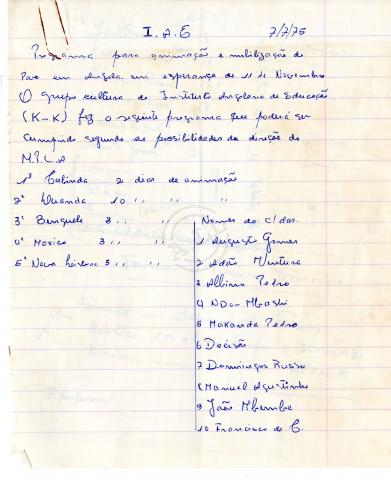 I. A. E 7/7/75
Programa para animação e mobilização do
Povo em Angola em esperança de 11 de Novembro
O grupo cultura do Instituto Angolano de Educação
(K-K) fez o seguinte programa que poderá ser
cumprido segundo as possibilidades da direção do
M.P.L.A
1º Cabinda 2 dias de animação
2º Luanda 10 ,, ,, ,,
3º Benguela 3 ,, ,, ,,
4º Moxico 3 ,, ,, ,,
5º Nova Lisboa 3 ,, ,, ,,
Nomes do c/das.
1 Augusto Gomes
2 Adão Ventura
3 Albino Pedro
4 NDom Mbashi
5 Makanda Pedro
6 Decisão
7 Domingos Russo
8 Manuel Agostinho
9 João Mbembe
10 Francisco de C.